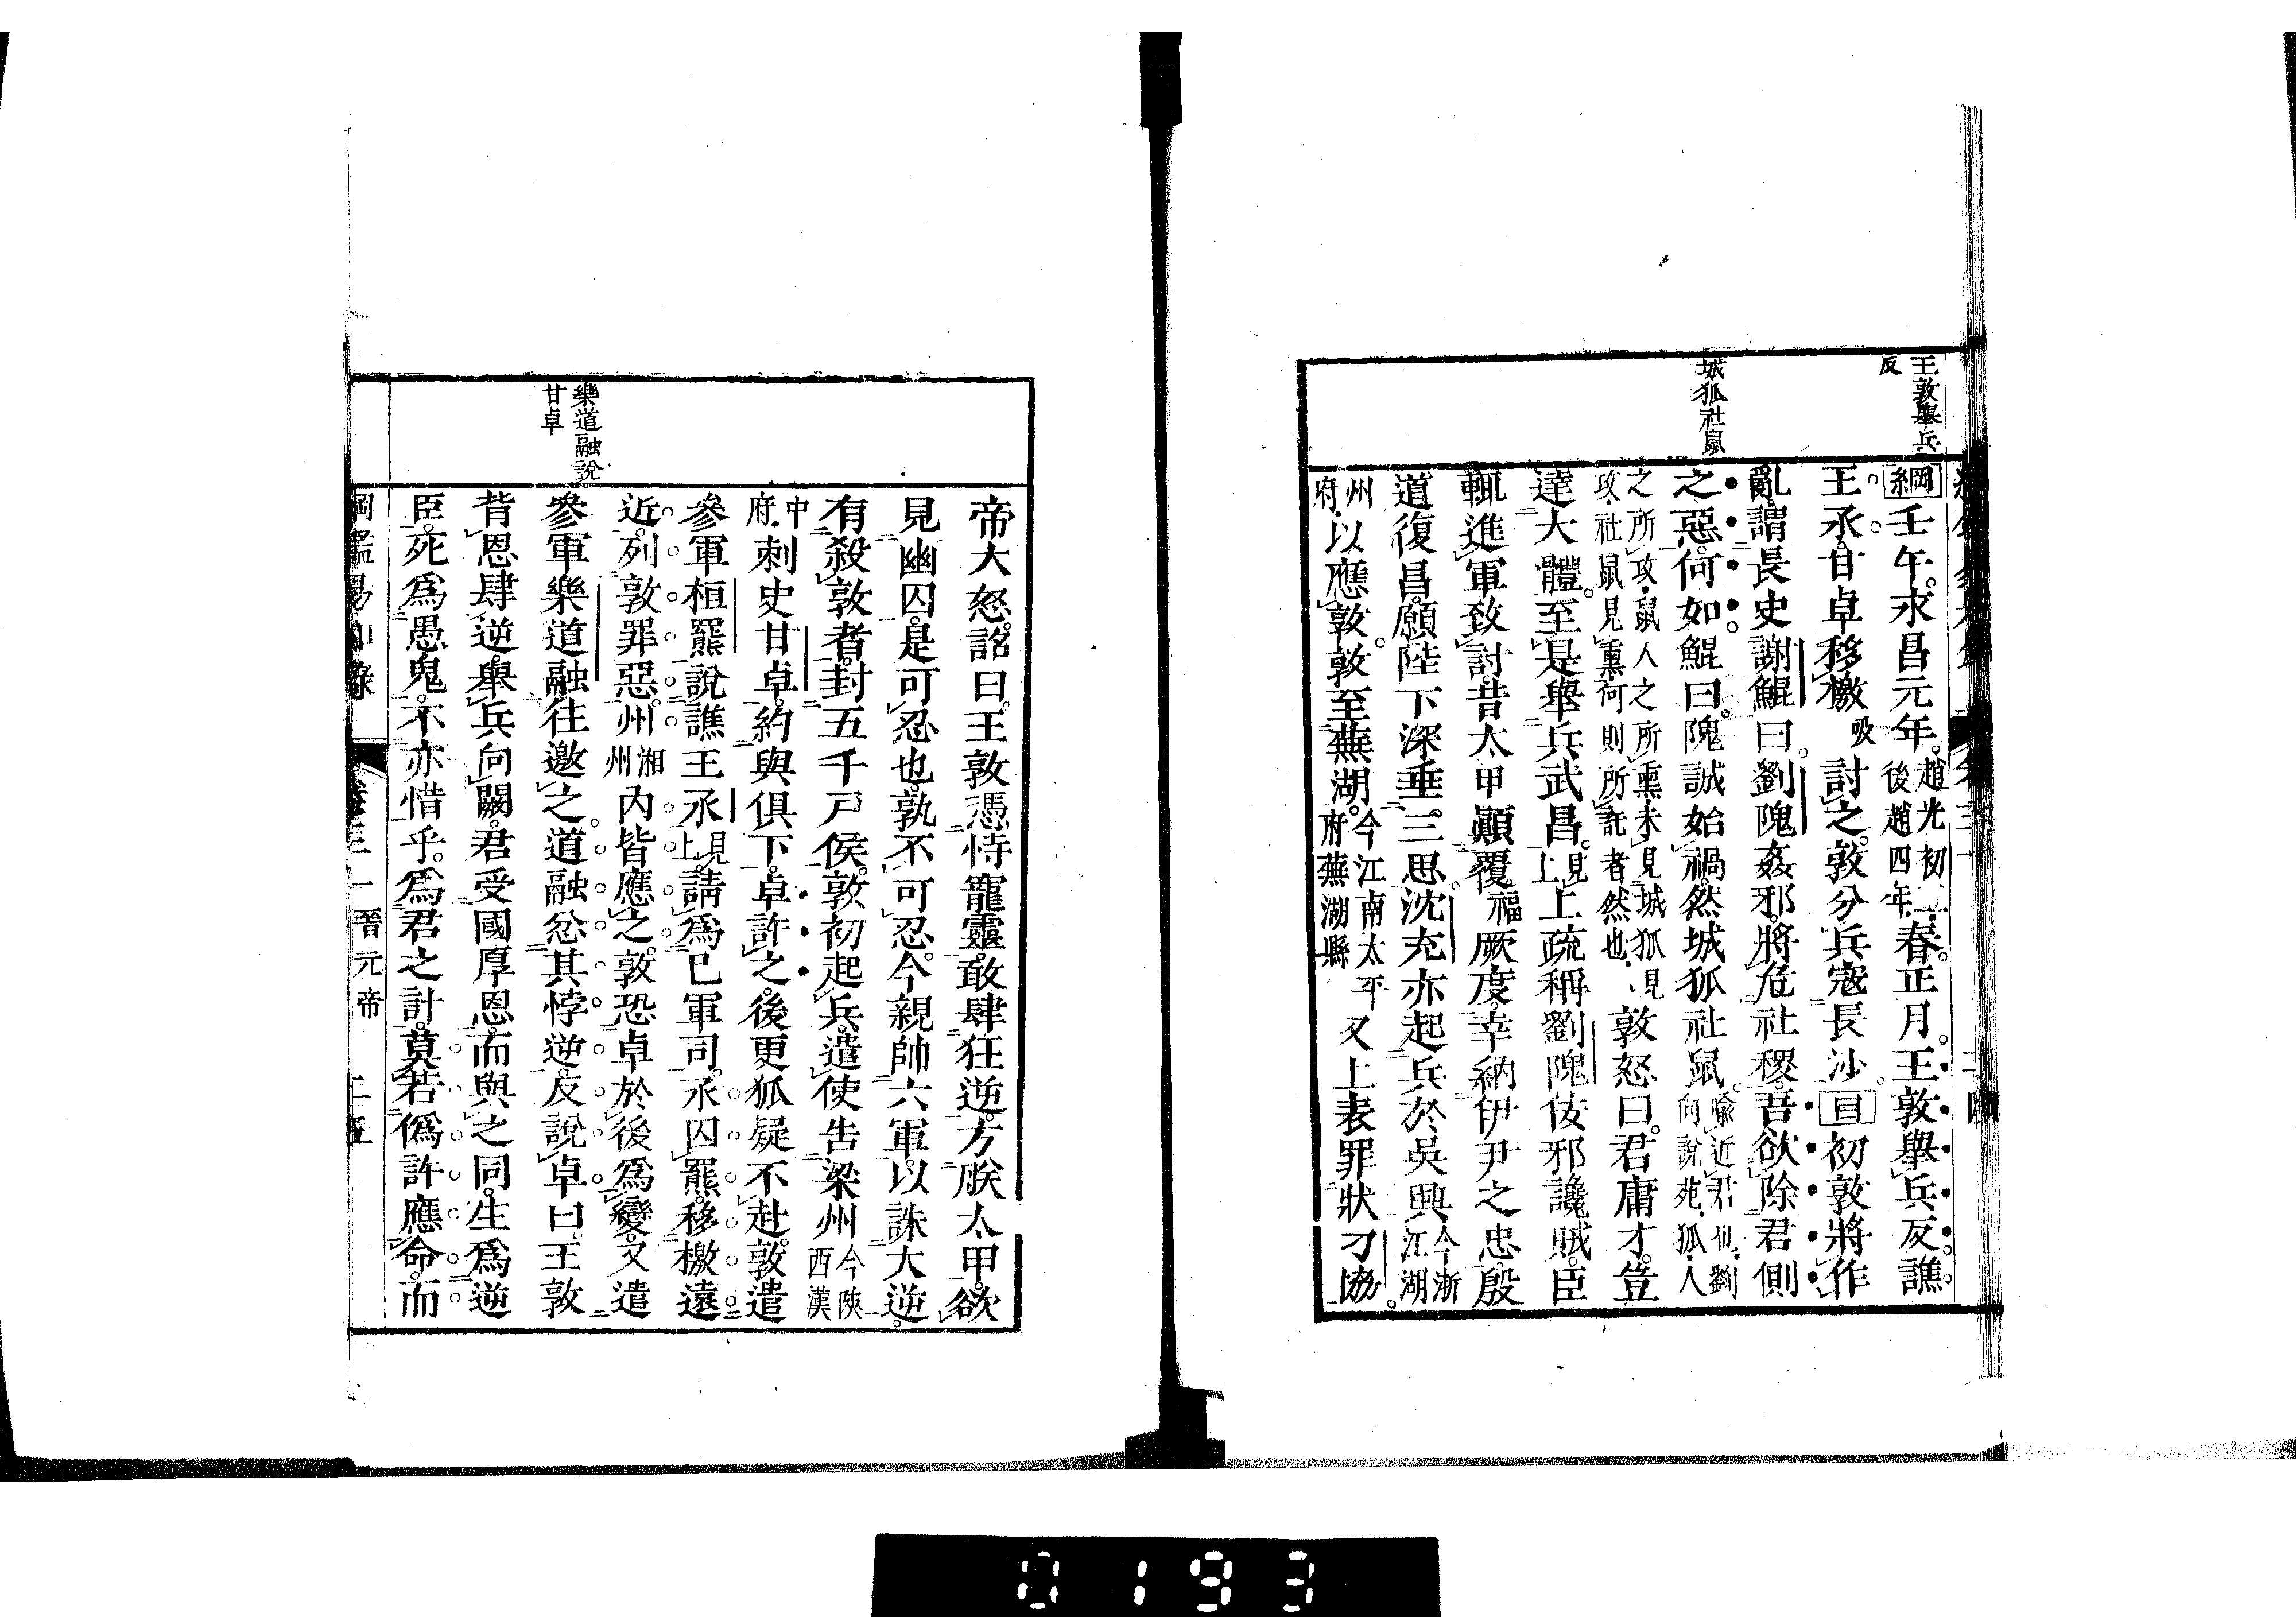 王敦舉兵
反
城狐社鼠
綱壬午。永昌元年。趙光初五。後趙四年。春。正月。王敦舉兵反。譙
王承。甘卓移檄吸討之。敦分兵寇長沙。目初敦將作
亂。謂長史謝鯤曰。劉隗姦邪。將危社稷。吾欲除君側
之惡。何如。鯤曰。隗誠始禍。然城狐社鼠。喩近君也。劉向說苑。狐人
之所攻。鼠人之所熏。未見城狐見
攻。社鼠見熏。何則。所託者然也。敦怒曰。君庸才。豈
達大體。至是舉兵武昌。見上上疏稱劉隗佞邪讒賊。臣
輒進軍致討。昔太甲顚覆福厥度。幸納伊尹之忠。殷
道復昌。願陛下深垂三思。沈充亦起兵於吳興。今浙江湖
州府。以應敦。敦至蕪湖。今江南太平府蕪湖縣又上表罪狀刁協。
樂道融說
甘卓
帝大怒。詔曰。王敦憑恃寵靈。敢肆狂逆。方朕太甲。欲
見幽囚。是可忍也。孰不可忍。今親帥六軍。以誅大逆。
有殺敦者。封五千戶侯。敦初起兵。遣使告梁州今陝西漢
中府。刺史甘卓。約與俱下。卓許之。後更狐疑不赴。敦遣
參軍桓羆說譙王承見上。請爲己軍司。承囚羆。移檄遠
近。列敦罪惡。州湘州內皆應之。敦恐卓於後爲變。又遣
參軍樂道融往邀之。道融忿其悖逆。反說卓曰。王敦
背恩肆逆。舉兵向闕。君受國厚恩。而與之同。生爲逆
臣。死爲愚鬼。不亦惜乎。爲君之計。莫若僞許應命。而
綱鑑易知錄 卷三一 晉元帝 二五
0193